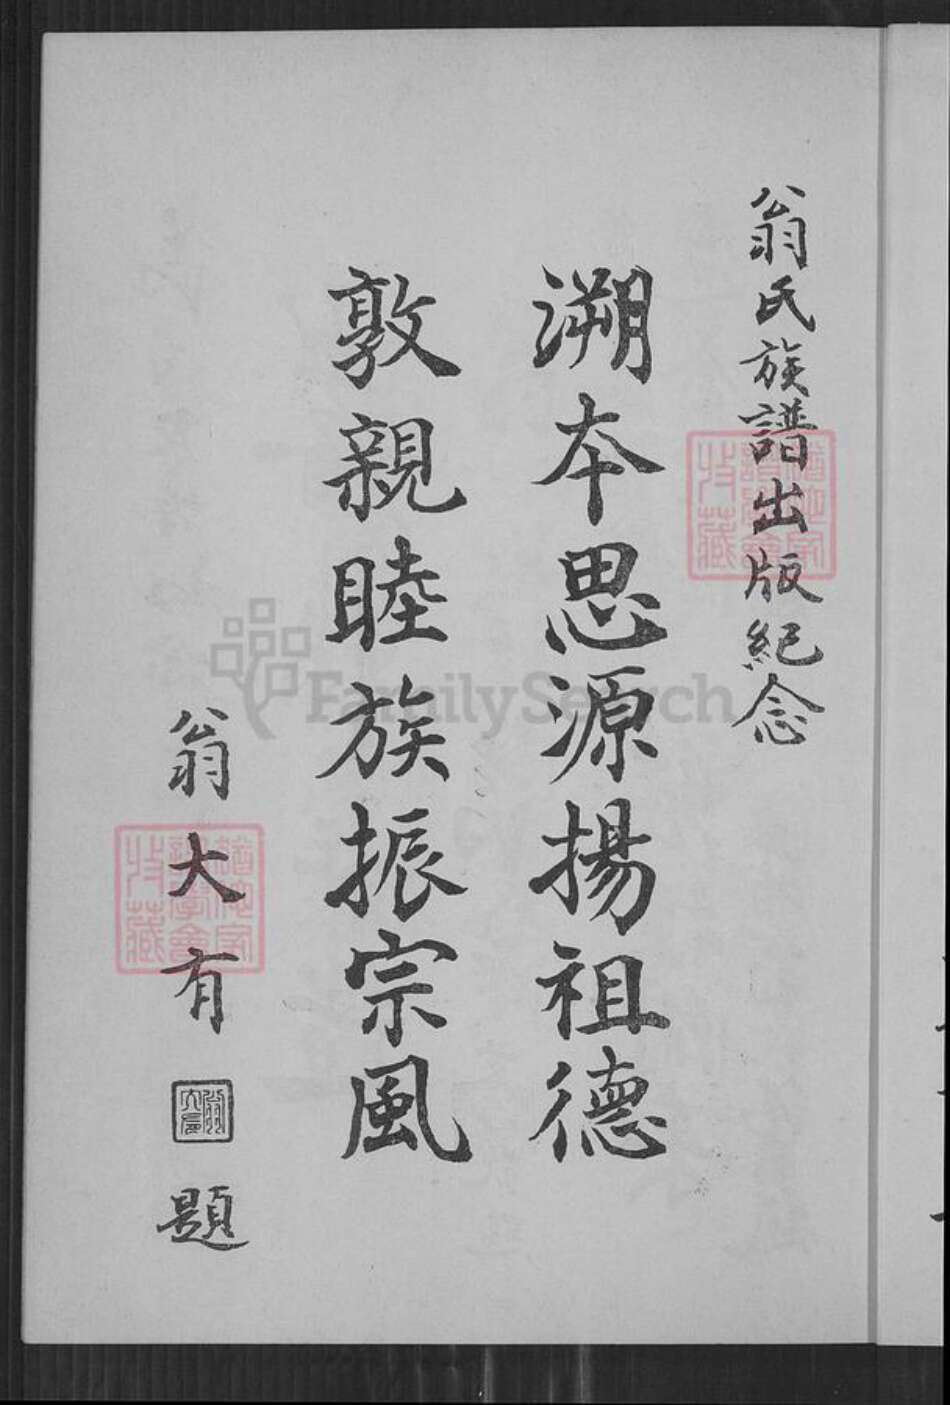 翁氏族譜出版紀念
溯本思源揚祖德
敦親睦族振宗風
翁大有
題
FamilySearch